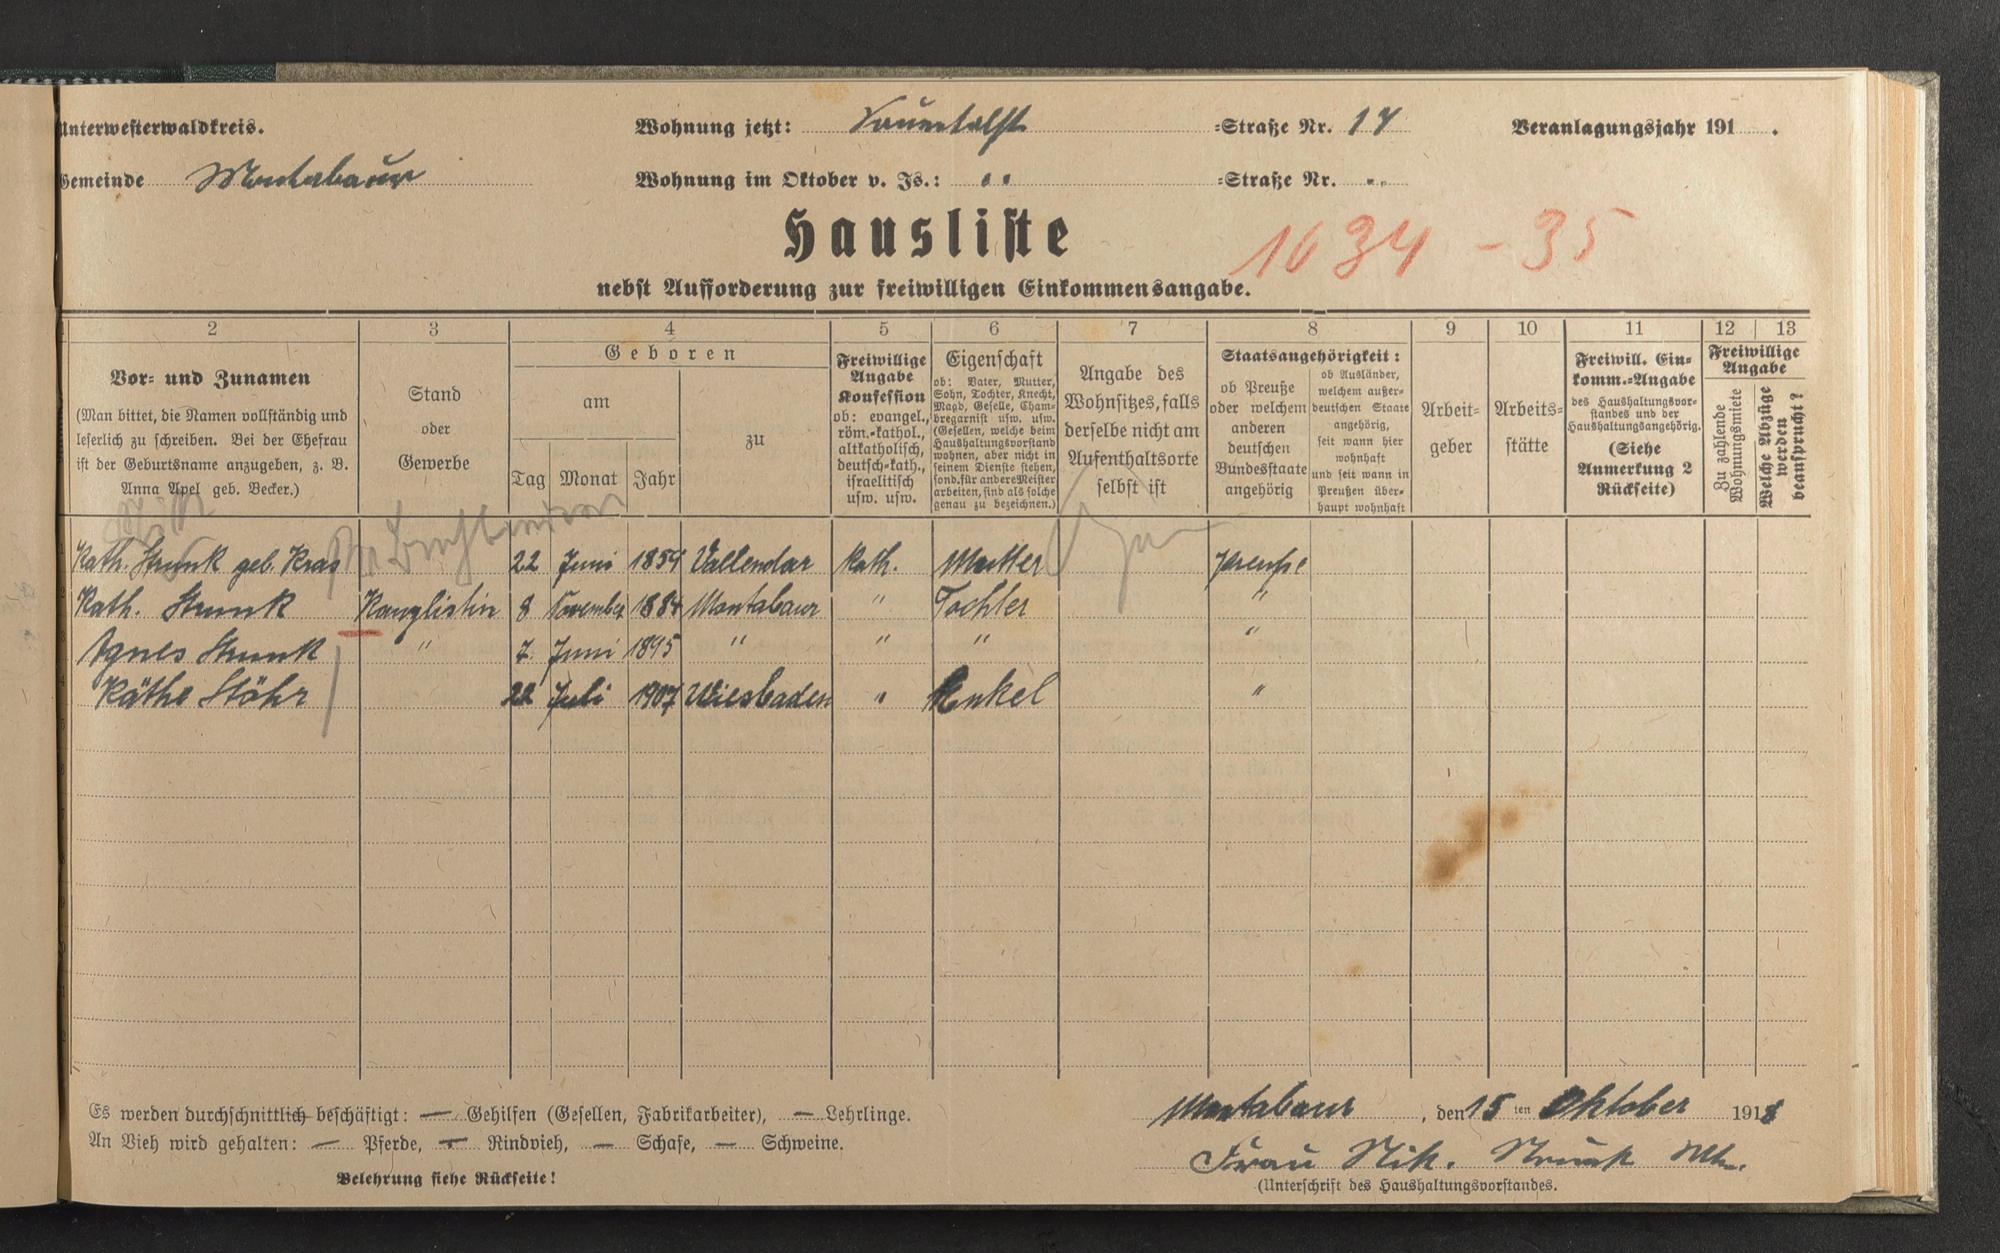 Unterwesterwaldkreis. Wohnung jetzt: Sauertalst =Straße Nr. 14 Veranlagungsjahr 191 .
Gemeinde Montabaur Wohnung im Oktober v. Js.: " =Straße Nr. "
Hausliste
1634-35
nebst Aufforderung zur freiwilligen Einkommensangabe.
2 3 4 5 6 7 8 9 10 11 12 13
Vor- und Zunamen
(Man bittet, die Namen vollständig und
leserlich zu schreiben. Bei der Ehefrau
ist der Geburtsname anzugeben, z. B.
Anna Apel geb. Becker.)
Stand
oder
Gewerbe
Geboren
am
Tag Monat Jahr
zu
Freiwillige
Angabe
Konfession
ob: evangel.,
röm.-kathol.,
altkatholisch,
deutsch-kath.,
israelitisch
usw. usw.
Eigenschaft
ob: Vater, Mutter,
Sohn, Tochter, Knecht,
Magd, Geselle, Cham-
bregarnist usw. usw.
(Gesellen, welche beim
Haushaltungsvorstand
wohnen, aber nicht in
seinem Dienste stehen,
sond. für andere Meister
arbeiten, sind als solche
genau zu bezeichnen.)
Angabe des
Wohnsitzes, falls
derselbe nicht am
Aufenthaltsorte
selbst ist
Staatsangehörigkeit:
ob Preuße
oder welchem
anderen
deutschen
Bundesstaate
angehörig
ob Ausländer,
welchem außer-
deutschen Staate
angehörig,
seit wann hier
wohnhaft
und seit wann in
Preußen über-
haupt wohnhaft
Arbeit-
geber
Arbeits-
stätte
Freiwill. Ein-
komm.-Angabe
des Haushaltungsvor-
standes und der
Haushaltungsangehörig.
(Siehe
Anmerkung 2
Rückseite)
Freiwillige
Angabe
Zu zahlende
Wohnungsmiete
Welche Abzüge
werden
beansprucht?
Kath. Strunk geb. Kras 22 Juni 1859 Vallendar kath. Mutter Preuße
Kath. Strunk Kanzlistin 8 November 1884 Montabaur " Tochter "
Agnes Strunk " 7. Juni 1895 " " " "
Käthe Stöhr 22 Juli 1907 Wiesbaden " Enkel "
Es werden durchschnittlich beschäftigt: — Gehilfen (Gesellen, Fabrikarbeiter), — Lehrlinge.
An Vieh wird gehalten: — Pferde, — Rindvieh, — Schafe, — Schweine.
Belehrung siehe Rückseite!
Montabaur, den 15ten Oktober 1918
Frau Nik. Strunk Ww.
(Unterschrift des Haushaltungsvorstandes.